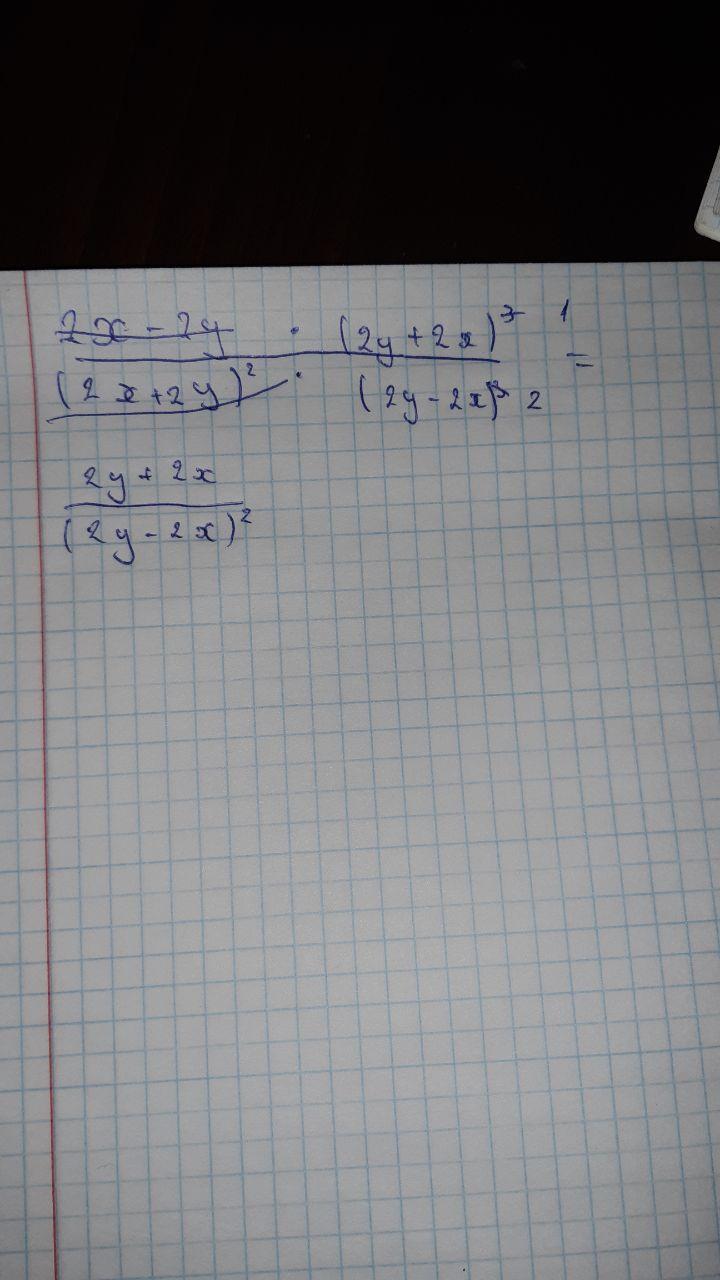 2x - 2y · (2y + 2x)³ 1
(2x + 2y)² · (2y - 2x)³ 2 =
2y + 2x
(2y - 2x)²